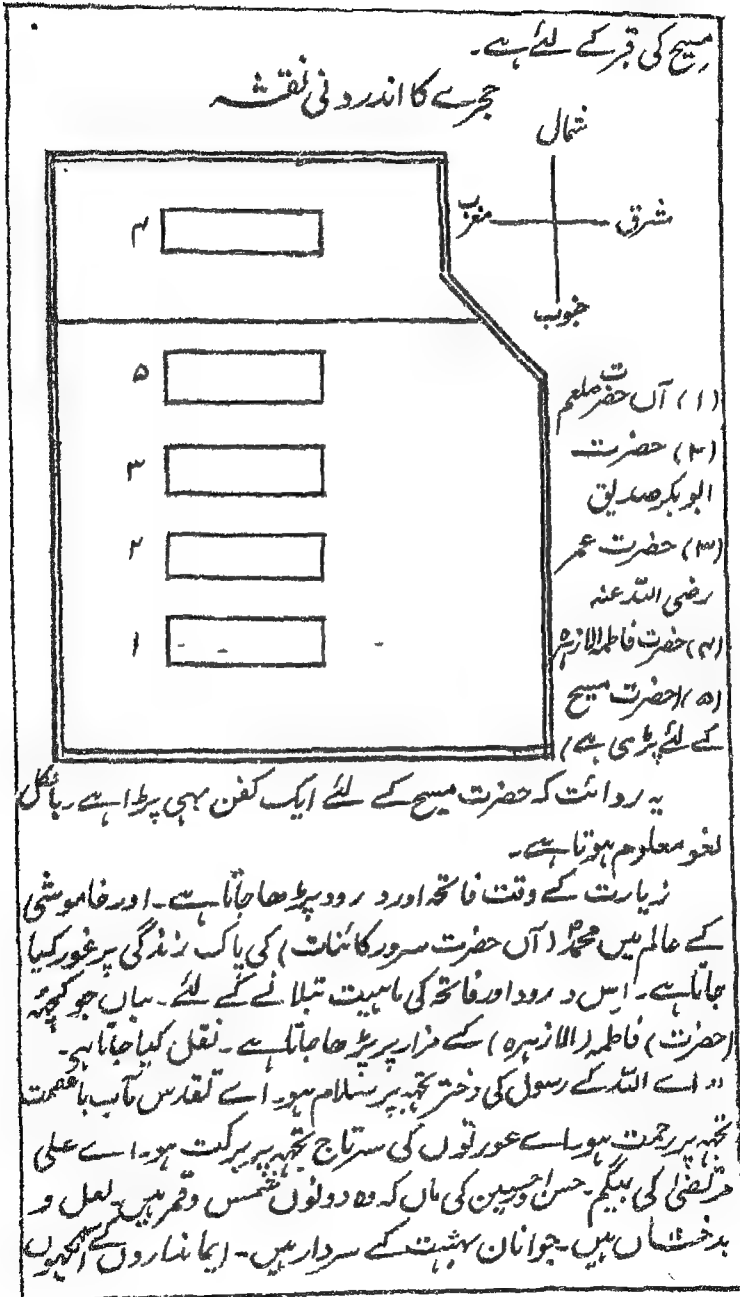 مسیح کی قبر کے لئے ہے۔
حجرے کا اندرونی نقشہ
شمال
شرق
مغرب
جنوب
۴
۵
۳
۲
۱
(۱) آں حضرت صلعم
(۲) حضرت
ابوبکر صدیق
(۳) حضرت عمر
رضی اللہ عنہ
(۴) حضرت فاطمہ الازہرہ
(۵) (حضرت مسیح
کے لئے پڑی ہے)
یہ روائت کہ حضرت مسیح کے لئے ایک کفن بھی پڑا ہے۔ بالکل
لغو معلوم ہوتا ہے۔
زیارت کے وقت فاتحہ اور درود پڑھا جاتا ہے۔ اور خاموشی
کے عالم میں محمدؐ (آں حضرت سرور کائنات) کی پاک زندگی پر غور کیا
جاتا ہے۔ اس درود اور فاتحہ کی ماہیت بتلانے کے لئے۔ یہاں جو کچھ
(حضرت) فاطمہ (الازہرہ) کے مزار پر پڑھا جاتا ہے۔ نقل کیا جاتا ہے۔
"اے اللہ کے رسول کی دختر تجہہ پر سلام ہو۔ اے تقدس مآب باعصمت
تجہہ پر رحمت ہو۔ اے عورتوں کی سرتاج تجہہ پر برکت ہو۔ اے علی
مرتضیٰ کی بیگم۔ حسن و حسین کی ماں کہ وہ دونوں شمس و قمر ہیں۔ لعل و
بدخشاں ہیں۔ جوانان بہشت کے سردار ہیں۔ ایمانداروں کے آنکھوں